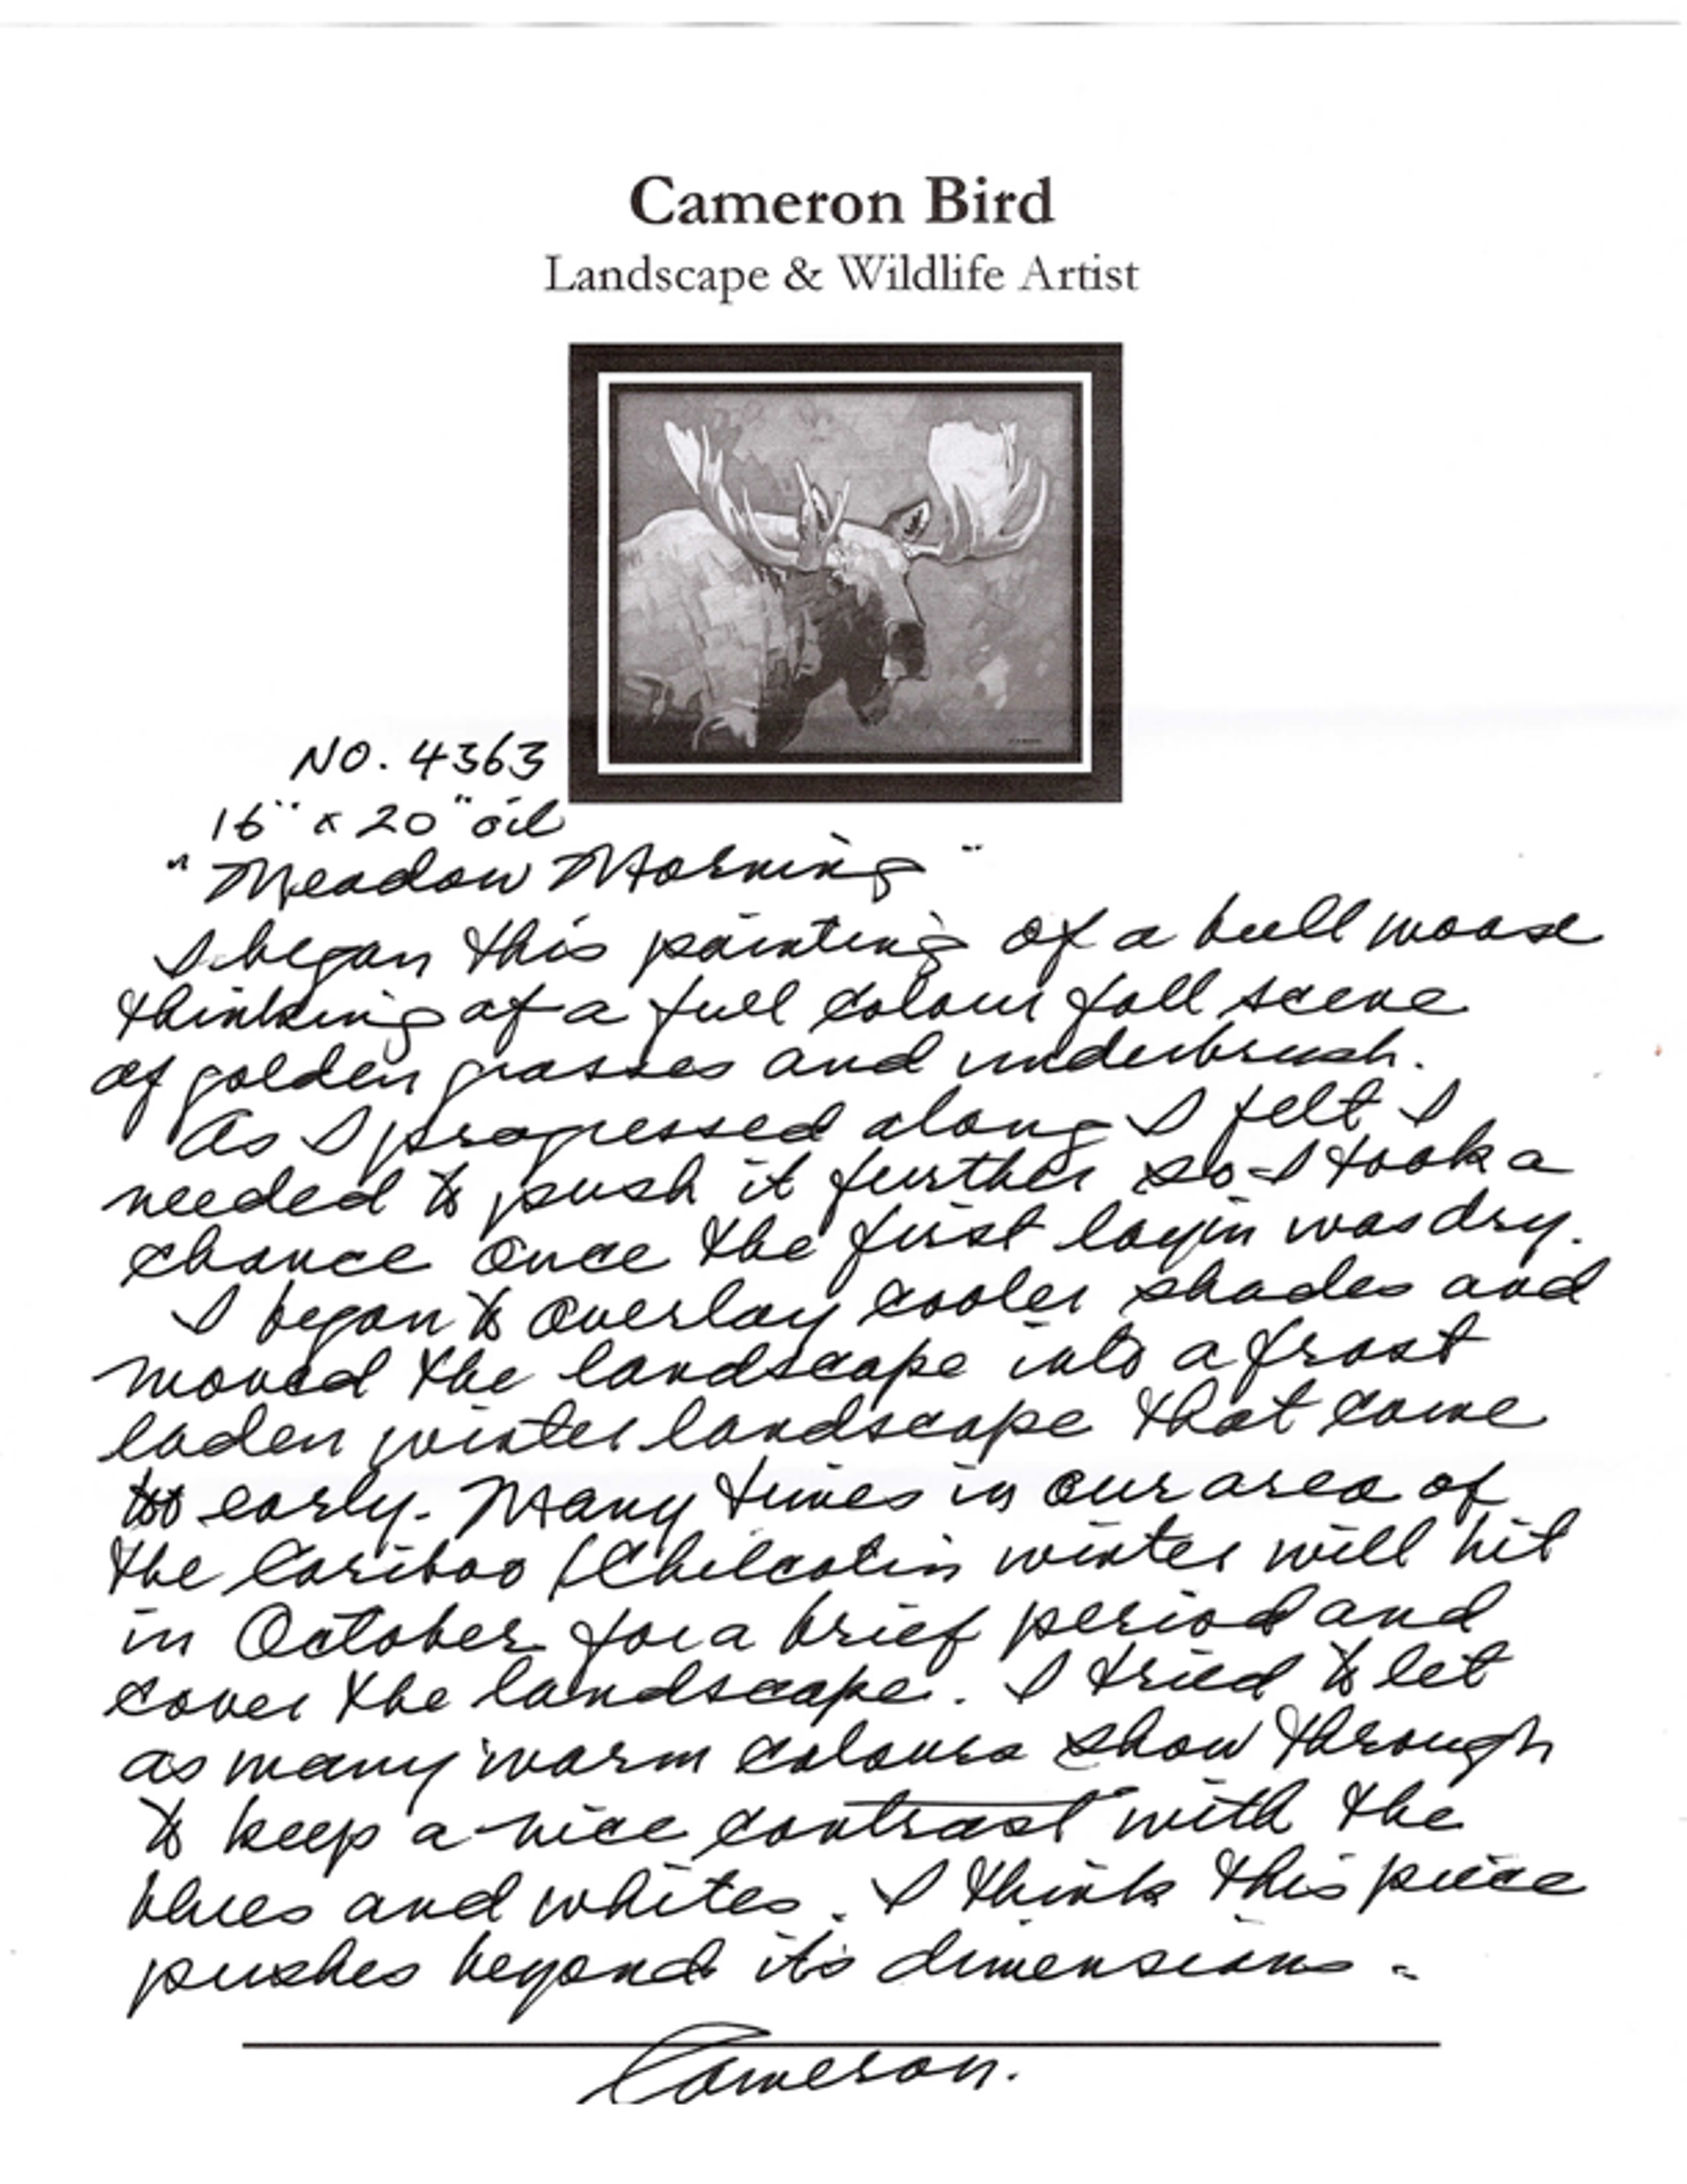 Cameron Bird
Landscape & Wildlife Artist
NO. 4363
16" x 20" oil
"Meadow Morning"
I began this painting of a bull moose
thinking of a full colour fall scene
of golden grasses and underbrush.
As I progressed along I felt I
needed to push it further so I took a
chance once the first layin was dry.
I began to overlay cooler shades and
moved the landscape into a frost
laden winter landscape that came
too early. Many times in our area of
the Cariboo / Chilcotin winter will hit
in October for a brief period and
cover the landscape. I tried to let
as many warm colours show through
to keep a nice contrast with the
blues and whites. I think this piece
pushes beyond it's dimensions.
Cameron.